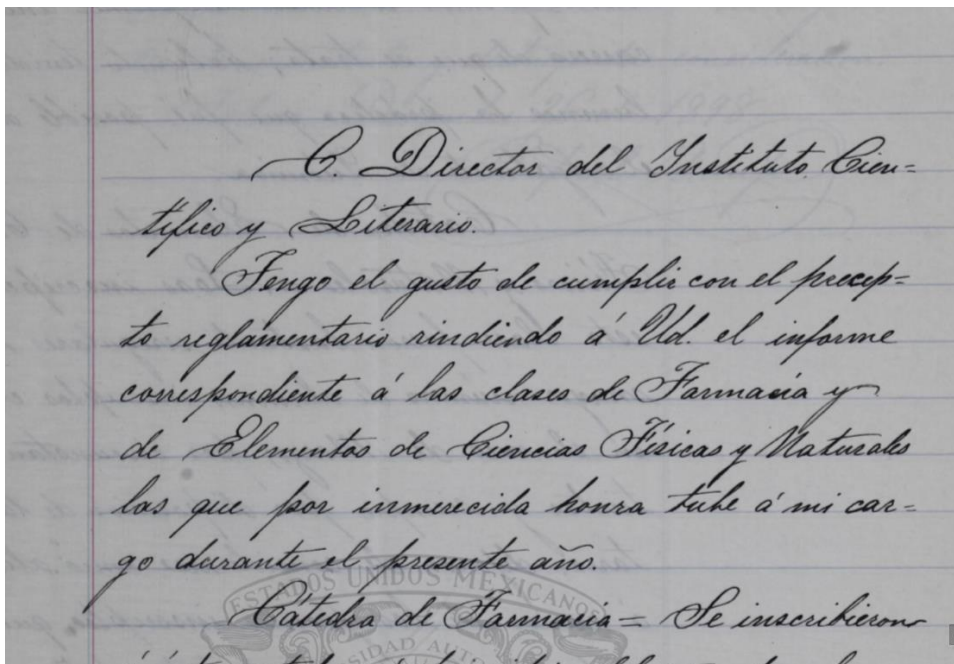 C. Director del Instituto Cien=
tífico y Literario.
Tengo el gusto de cumplir con el precep=
to reglamentario rindiendo á Ud. el informe
correspondiente á las clases de Farmacia y
de Elementos de Ciencias Físicas y Naturales
las que por inmerecida honra tube á mi car=
go durante el presente año.
ESTADOS UNIDOS MEXICANOS
Cátedra de Farmacia = Se inscribieron